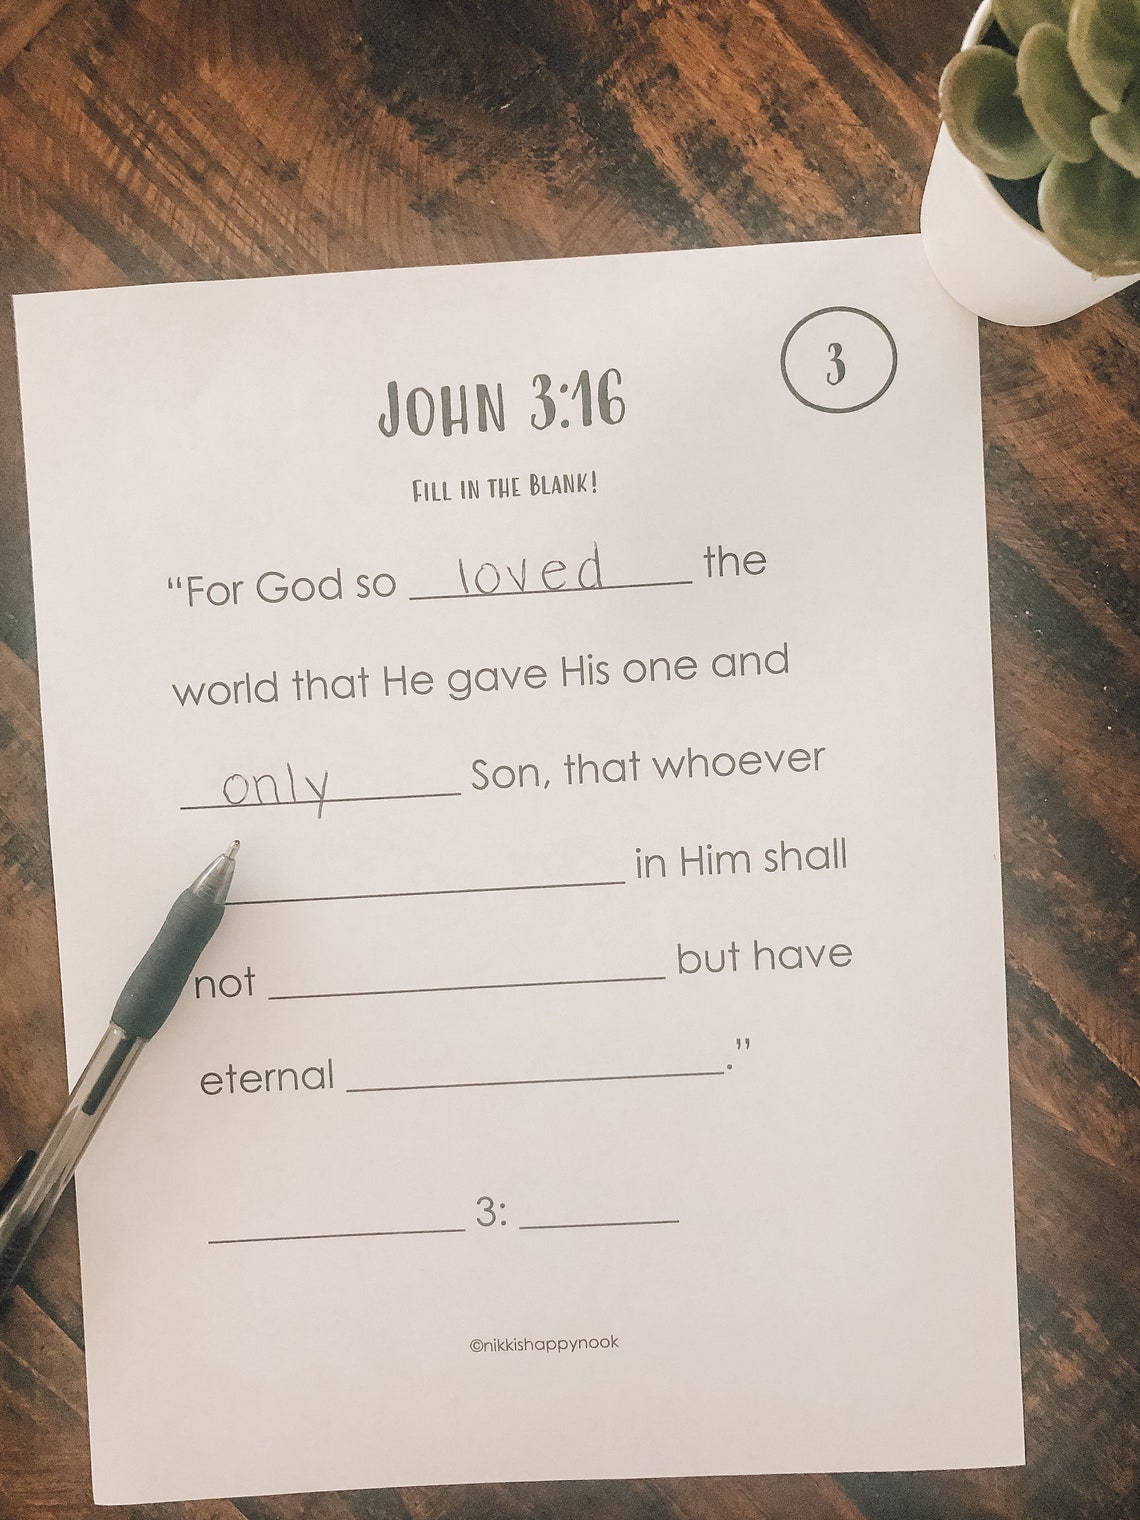 3
JOHN 3:16
FILL IN THE BLANK!
“For God so loved the
world that He gave His one and
only Son, that whoever
in Him shall
not but have
eternal .”
3:
©nikkishappynook